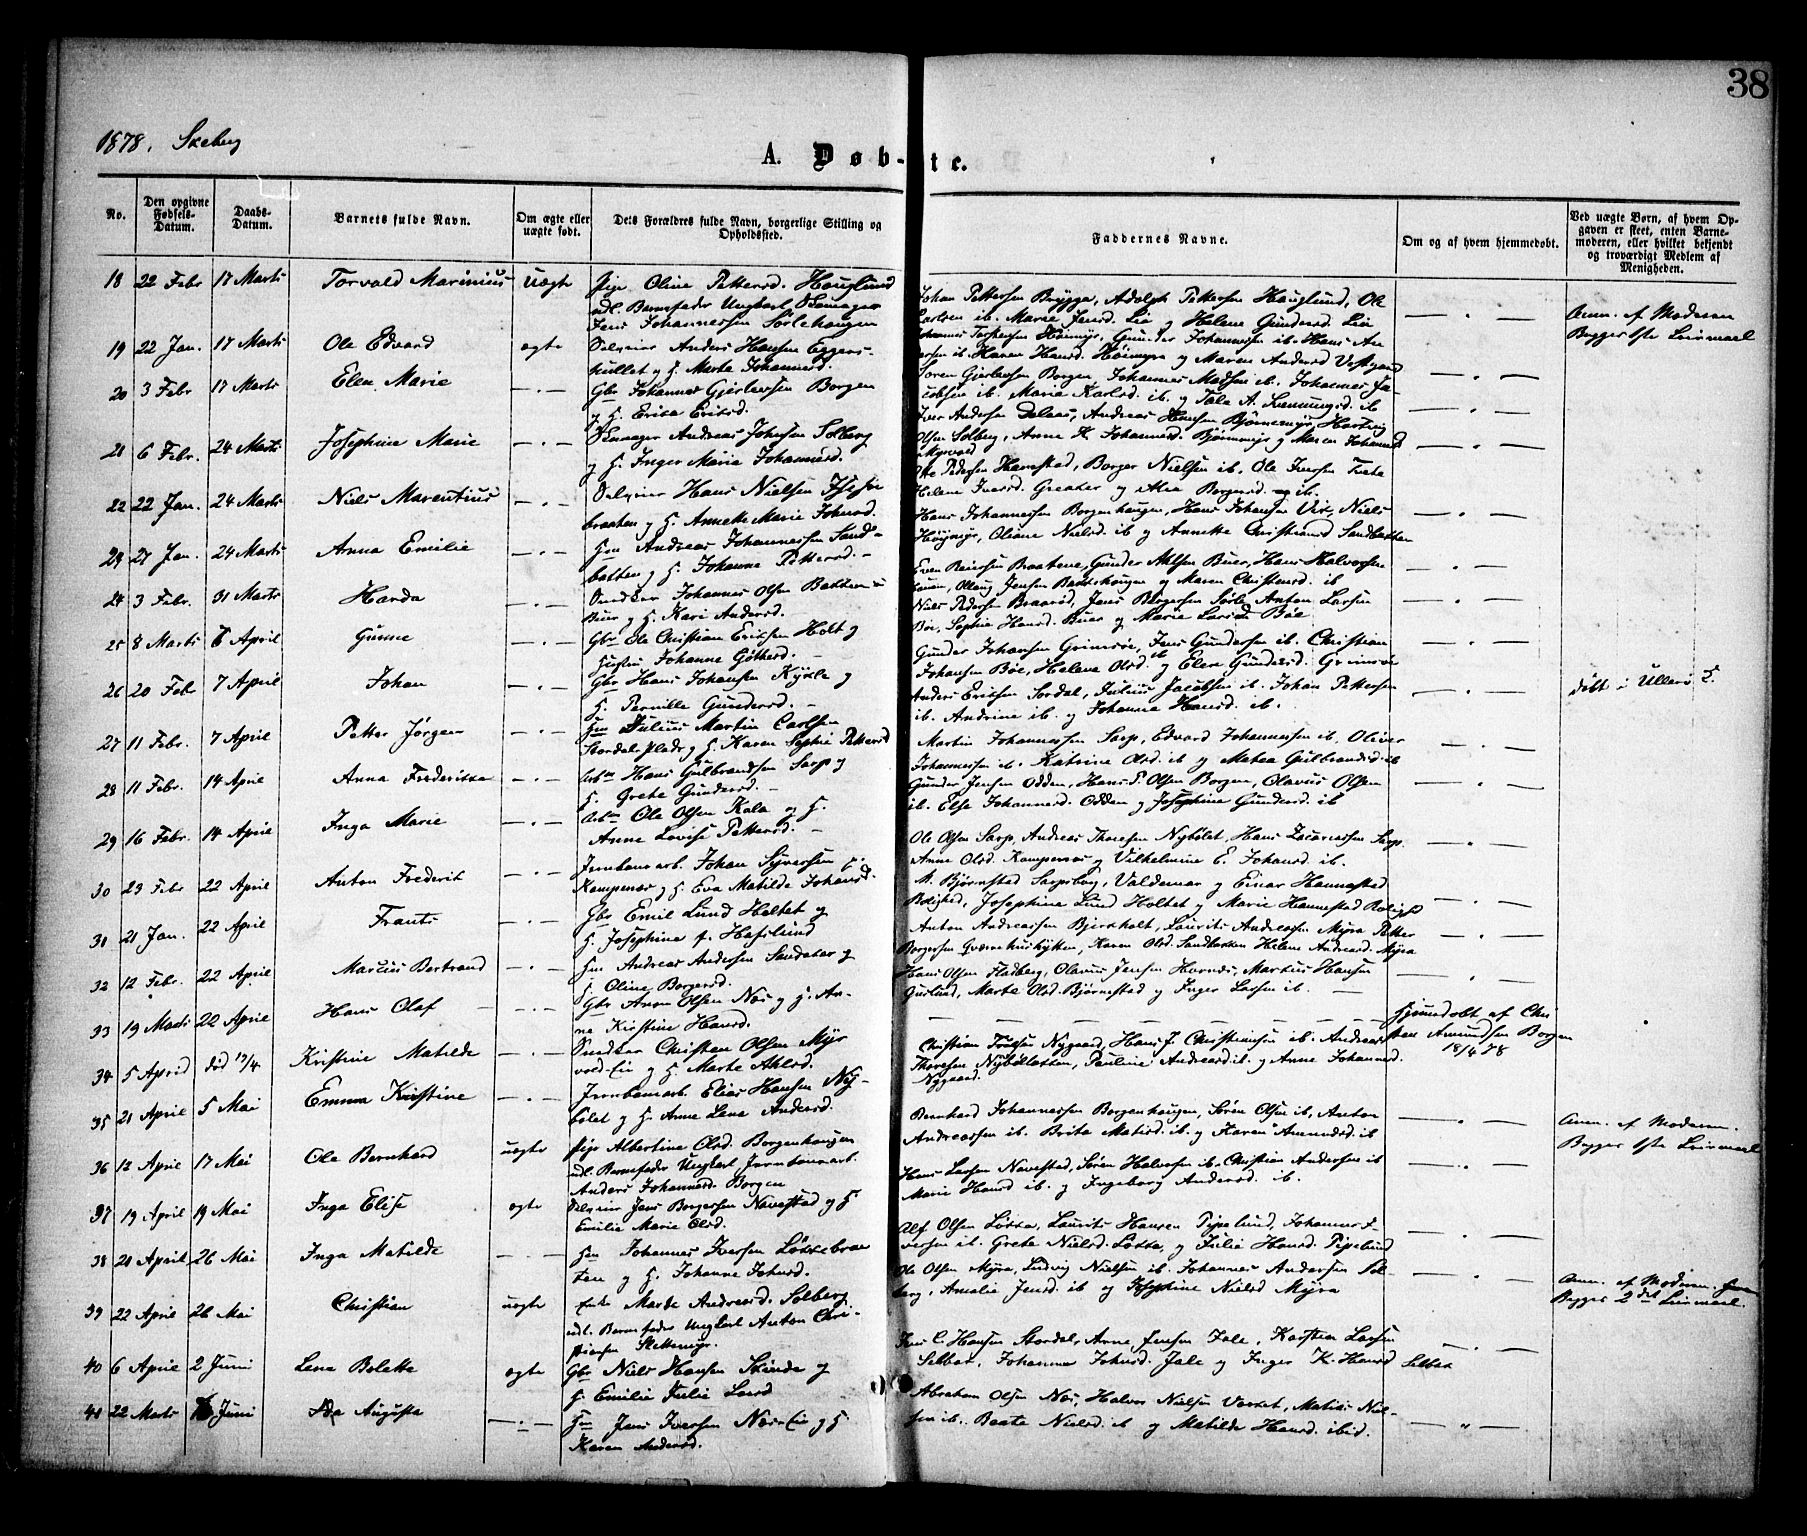 38
1878. Skeberg
A. Døbte.
No.
Den opgivne Fødsels-Datum.
Daabs-Datum.
Barnets fulde Navn.
Om ægte eller uægte født.
Dets Forældres fulde Navn, borgerlige Stilling og Opholdssted.
Faddernes Navne.
Om og af hvem hjemmedøbt.
Ved uægte Børn, af hvem Opgaven er skeet, enten Barnemoderen, eller hvilket bekjendt og troværdigt Medlem af Menigheden.
18 22 Febr 17 Marts Torvald Marinius Uægte Pige Oline Pettersd. Hauglund
udl. Barnefader Ungkarl
Jens Johannessen Sørlehaugen
Johan Pettersen Brygga, Adolph Pettersen Hauglund, Ole
Carlsen ib. Marie Jensd. Lie og Helene Gundersd. Lie
Anm. af Moderen
Begges 1ste Leirmaal
19 22 Jan. 17 Marts Ole Edvard ægte Selveier Anders Hansen Eggers-
hullet og H. Marte Johannesd.
Johannes Torstensen Høimyr, Gunder Johannesen ib. Hans An-
dersen ib. Karen Hansd. Høimyr og Maren Andersd Vestgaard
20 3 Febr 17 Marts Elen Marie Gbr Johannes Gjerlevsen Borgen
og H. Erika Eriksd.
Søren Gjerlevsen Borgen Johannes Madsen ib. Johannes Ja-
cobsen ib. Maria Karlsd. ib. og Tale A. Svenningsd. ib
21 6 Febr. 24 Marts Josephine Marie Andreas Johnsen Solberg
og H. Inger Marie Johannesd.
Iver Andersen Delaas, Andreas Hansen Bjørnemyr, Hartvig
Olsen Solberg, Anne K. Johannesd. Bjørnmyr og Maren Johannesd
Myrvold
22 22 Jan. 24 Marts Niels Marentius Selveier Hans Nielsen
braaten og H. Annette Marie Johnsd.
Ole Pedersen Hannestad, Borger Nielsen ib. Ole Iversen Tvete
Helene Iversd. Greaker og Mia Borgersd. ib.
23 27 Jan. 24 Marts Anna Emilie Hm Andreas Johannessen Sand-
bakken og H. Johanne Pettersd.
Hans Johannessen Borgenhaugen, Hans Johansen Vis, Niels
Høymyr, Oliane Nielsd. ib og Annette Christiansd Sandbakken
24 3 Febr. 31 Marts Harda Smedker Johannes Olsen Bakken
Buer og H. Kari Andersd.
Even Reiersen Braatene, Gunder Ahlsen Buer, Hans Halvorsen
Olaug Jensen Bakkehaugen og Maren Christensd. ib
25 8 Marts 6 April Gunne Gbr Ole Christian Eriksen Holt og
Hustru Johanne Gøthesd.
Niels Pedersen Braarød, Jens Børgersen Sørlie Anton Larsen
Bøe, Sophie Hansd. Buer og Marie Larsd. Bøe
26 20 Feb 7 April Johan Gbr Hans Johansen Kykle og
H. Pernille Gundersd.
Gunder Johansen Grimsøe, Jens Gundersen ib. Christian
Johansen Bøe, Helena Olsd. ib og Elen Gundersd. Grimsøe
døbt i Ullerø K.
27 11 Febr. 7 April Petter Jørgen Hm Julius Martin Carlsen
Stordal Plads og H. Karen Sophie Pettersd
Anders Eriksen Sordal, Julius Jacobsen ib. Johan Pettersen
ib. Andrine ib. og Johanna Hansd. ib.
28 11 Febr. 14 April Anna Frederikke Arb. Hans Gulbrandsen Sarp og
H. Grete Gundersd.
Martin Johannessen Sarp, Edvard Johannessen ib. Oliver
Johannessen ib. Katrine Olsd. ib og Matea Gulbrandsd. ib
29 16 Febr. 14 April Inga Marie Arb. Ole Olsen Kala og H.
Anne Lovise Pettersd.
Gunder Jensen Odden, Hans P. Olsen Borgen, Olavus Olsen
ib. Else Johannesd. Odden og Josephine Gundersd. ib
30 23 Febr 22 April Anton Frederik Jernbanearb. Johan Syversen
Kampenæs og H. Eva Matilde Johansd.
Ole Olsen Sarp, Andreas Thoresen Nybølet, Hans Zacariassen Sarp
Anne Olsd. Kampenæs og Vilhelmine E. Johansd. ib.
31 21 Jan. 22 April Frants Gbr Emil Lund Holtet og
H. Josephine f. Hafslund
M. Bjørnstad Sarpsborg, Valdemar og Einar Hannestad
Rolighed, Josephine Lund Holtet og Marie Hannestad Rolighed
32 12 Febr. 22 April Marius Bertrand Hm Andreas Andersen Sandbakken og
H. Oline Borgersd.
Anton Andreassen Bjerkholt, Laurits Andreassen Myra Petter
Borgersen Qværnhushytten, Karen Olsd. Sandbakken Helene Andreasd. Myra
33 19 Marts 22 April Hans Olaf Gbr Anon Olsen Næs og H. An-
ne Kirstine Hansd.
Hans Olsen Fladberg, Olavus Jensen Hornæs, Martius Hansen
Guslund, Marte Olsd. Bjørnstad og Inger Larsen ib.
34 5 April død 19/4. Kristine Matilde Smedker Christen Olsen Myr
vold-Eie og H. Marte Ahlsd.
hjemmedøbt af Chri
sten Amundsen Borgen
18/4 78
35 21 April 5 Mai Emma Kristine Jernbanearb. Elias Hansen Ny-
bølet og H. Anne Lena Andersd.
Christian Nygaard, Hans J. Christiansen ib. Andreas
Thoresen Nybølbakken, Pauline Andreasd ib. og Anne Johannesd.
Nygaard
36 12 April 17 Mai Ole Bernhard uægte Pige Albertine Olsd. Borgenhaugen
udl. Barnefader Ungkarl Jernbanearb.
Anders Johannesd. Borgen
Bernhard Johannessen Borgenhaugen, Søren Olsen ib, Anton
Andreassen ib. Brita Matisd. ib. og Karen Amundsd. ib
Anm. af Moderen.
Begges 1ste Leirmaal
37 19 April 19 Mai Inga Elise ægte Selveier Jens Borgersen Navestad og H.
Emilie Marie Olsd.
Hans Larsen Navestad, Søren Halvorsen ib. Christian Andersen ib
Marie Hansd ib. og Ingeborg Andersd. ib.
38 21 April 26 Mai Inga Matilde Hm Johannes Iversen Løkkebraa
ten og H. Johanne Johnsd.
Alf Olsen Løkka, Laurits Hansen Pipelund, Johannes I-
versen ib. Grete Nielsd. Løkka, og Julie Hansd. Pipelund
39 22 April 26 Mai Christian uægte Enke Marte Andreasd. Solberg
udl. Barnefader Ungkarl Anton Chri-
stiansen Slettemyr.
Ole Olsen Myra, Ludvig Nielsen ib. Johannes Andersen Sol-
berg, Amalie Jensd. ib og Josephine Nielsd Myra
Anm. af Moderen.
Begges 2det Leirmaal.
40 6 April 2 Juni Lena Bolette ægte Gbr Niels Hansen Skinde og
H. Emilie Julie Larsd
Jens C. Hansen Stordal, Arne Jensen Jale, Karsten Larsen
Selbak, Johanna Johnsd. Jale og Inger K. Hansd Selbak
41 22 Marts Juni Ida Augusta Hm Jens Iversen Næs-Eie og H
Karen Andersd.
Abraham Olsen Næs, Halvor Nielsen Værket, Matias Niel-
sen ib. Beate Nielsd. ib og Matilde Hansd. ibid.